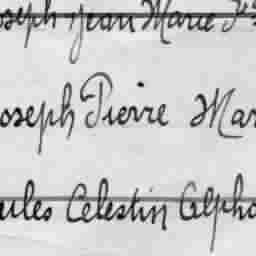 oseph Jean Marie Fs
oseph Pierre Mar
ules Celestin Alpho